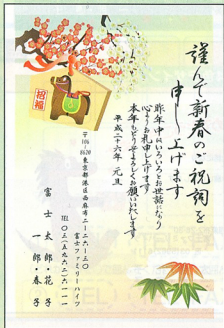 謹んで新春のご祝詞を
申し上げます
昨年中はいろいろとお世話になり
心よりお礼申し上げます
本年もどうぞよろしくお願いいたします
平成二十六年 元旦
〒106-8620 東京都港区西麻布二ー二六ー三〇
富士ファミリーハイツ
TEL 〇三(五九六二)六一一一
富士 太郎・花子
一郎・春子
招福